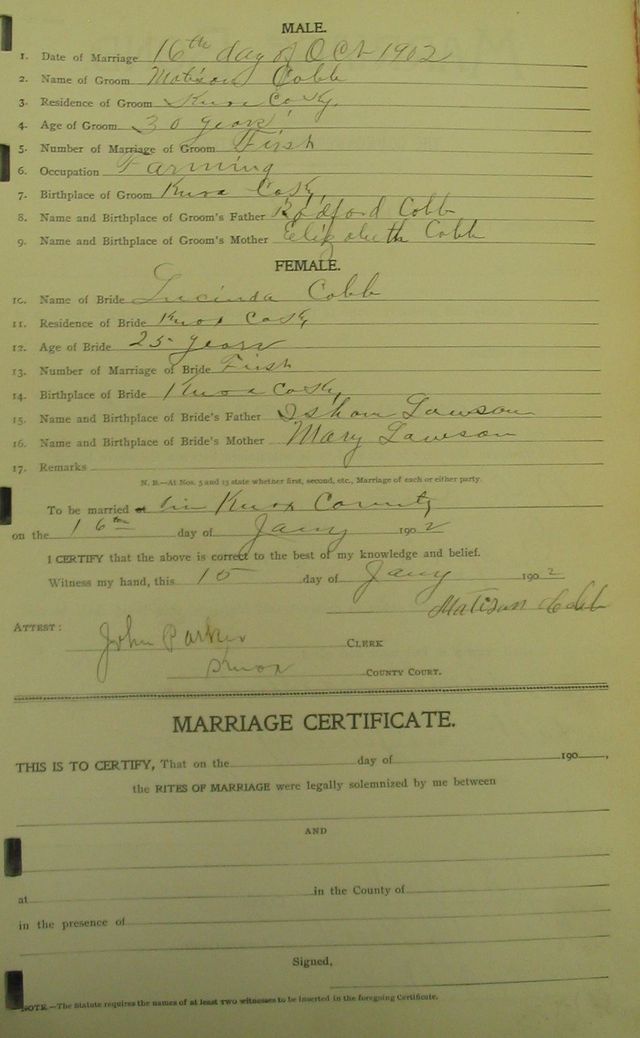 MALE.
1. Date of Marriage 16th day of Oct 1902
2. Name of Groom Matison Cobb
3. Residence of Groom Knox Co Ky.
4. Age of Groom 30 years
5. Number of Marriage of Groom First
6. Occupation Farming
7. Birthplace of Groom Knox Co Ky.
8. Name and Birthplace of Groom's Father Radford Cobb
9. Name and Birthplace of Groom's Mother Elizabeth Cobb
FEMALE.
10. Name of Bride Lucinda Cobb
11. Residence of Bride Knox Co Ky
12. Age of Bride 25 years
13. Number of Marriage of Bride First
14. Birthplace of Bride Knox Co Ky
15. Name and Birthplace of Bride's Father Isham Lawson
16. Name and Birthplace of Bride's Mother Mary Lawson
17. Remarks
N. B.—At Nos. 5 and 13 state whether first, second, etc., Marriage of each or either party.
To be married at in Knox County
on the 16th day of Jany 1902
I CERTIFY that the above is correct to the best of my knowledge and belief.
Witness my hand, this 15 day of Jany 1902
Matison Cobb
ATTEST: John Parker CLERK
Knox COUNTY COURT.
MARRIAGE CERTIFICATE.
THIS IS TO CERTIFY, That on the day of 190 ,
the RITES OF MARRIAGE were legally solemnized by me between
AND
at in the County of
in the presence of
Signed,
NOTE.—The Statute requires the names of at least two witnesses to be inserted in the foregoing Certificate.